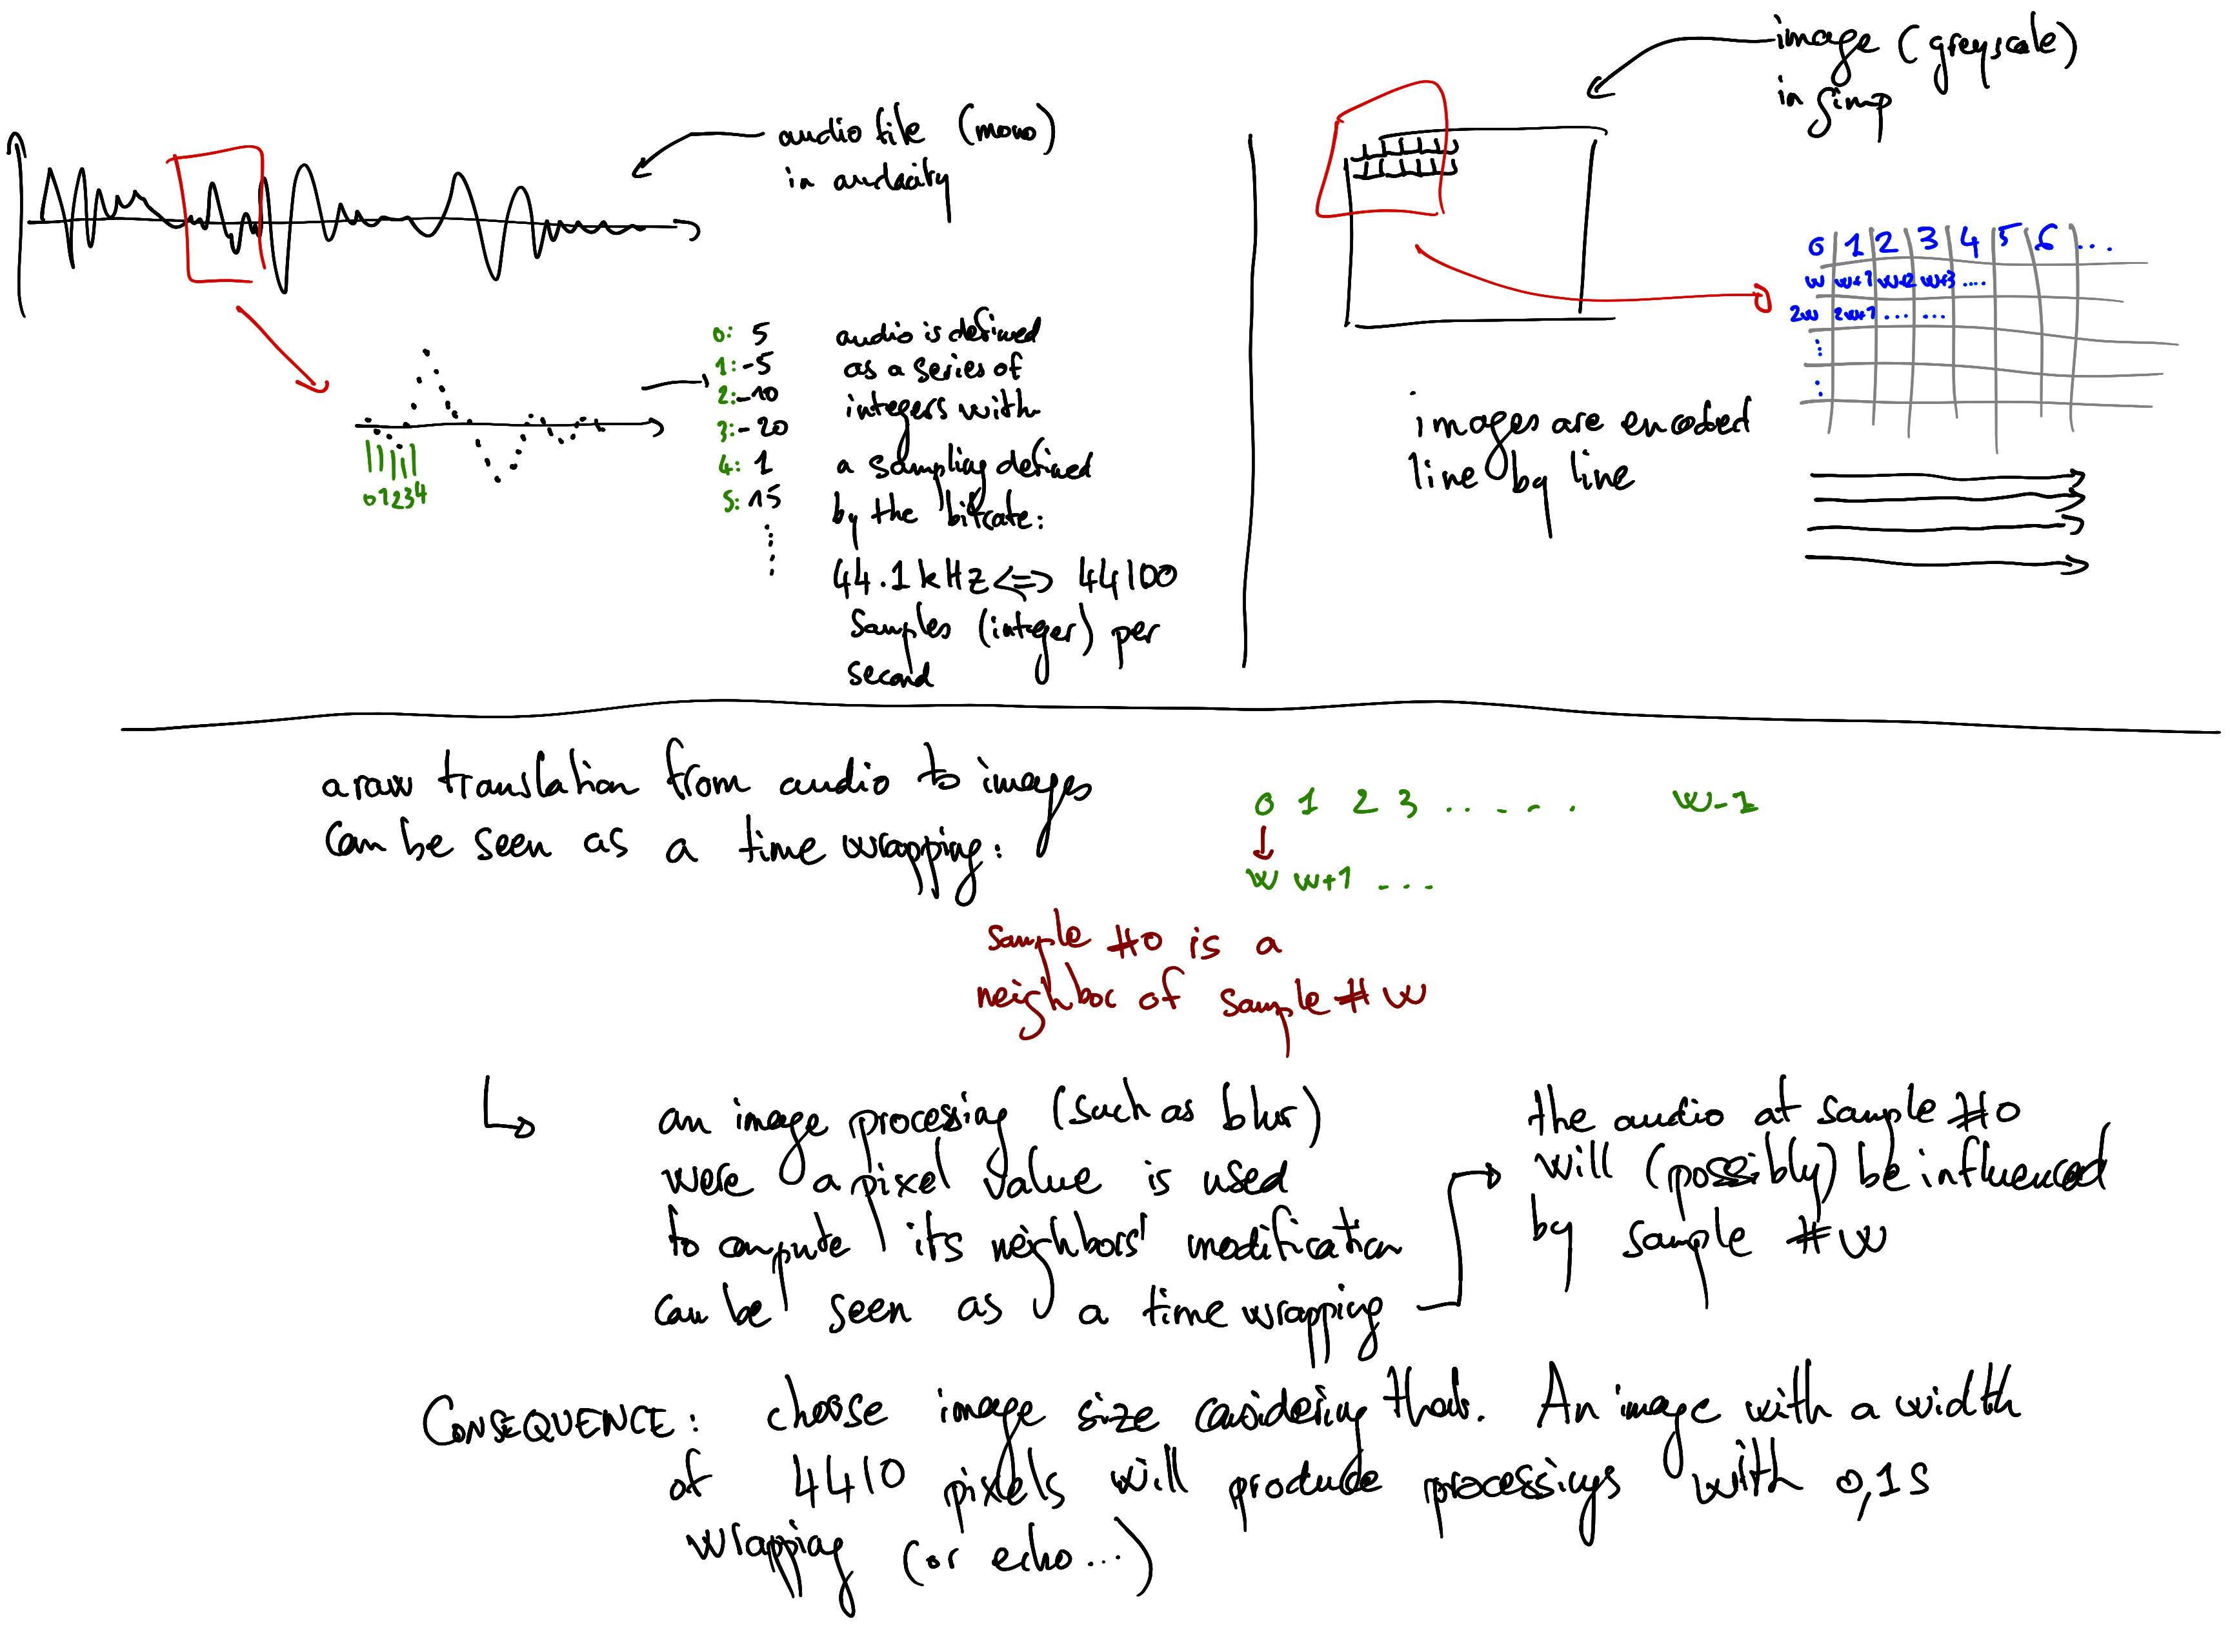 audio file (mono)
in audacity
0: 5
1: -5
2: -10
3: -20
4: 1
5: 15
01234
audio is defined
as a series of
integers with
a sampling defined
by the bitrate:
44.1 kHz <=> 44100
samples (integer) per
second
image (greyscale)
in gimp
0 1 2 3 4 5 6 ...
w w+1 w+2 w+3 ....
2w 2w+1 ... ...
images are encoded
line by line
a raw translation from audio to images
can be seen as a time wrapping:
0 1 2 3 ...... w-1
w w+1 ...
sample #0 is a
neighbor of sample #w
an image processing (such as blur)
were a pixel value is used
to compute its neighbors' modification
can be seen as a time wrapping
the audio at sample #0
will (possibly) be influenced
by sample #w
CONSEQUENCE: choose image size considering that. An image with a width
of 4410 pixels will produce processings with 0,1s
wrapping (or echo...)